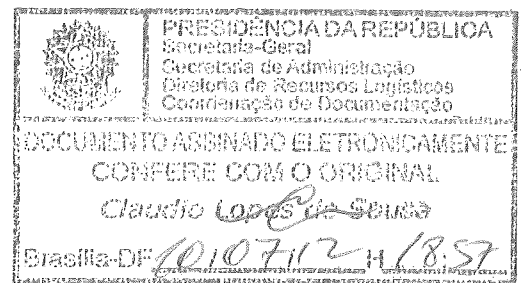 PRESIDÊNCIA DA REPÚBLICA
Secretaria-Geral
Secretaria de Administração
Diretoria de Recursos Logísticos
Coordenação de Documentação
DOCUMENTO ASSINADO ELETRONICAMENTE
CONFERE COM O ORIGINAL
Claudio Lopes de Sousa
Brasília-DF 10/07/12 H 18:57